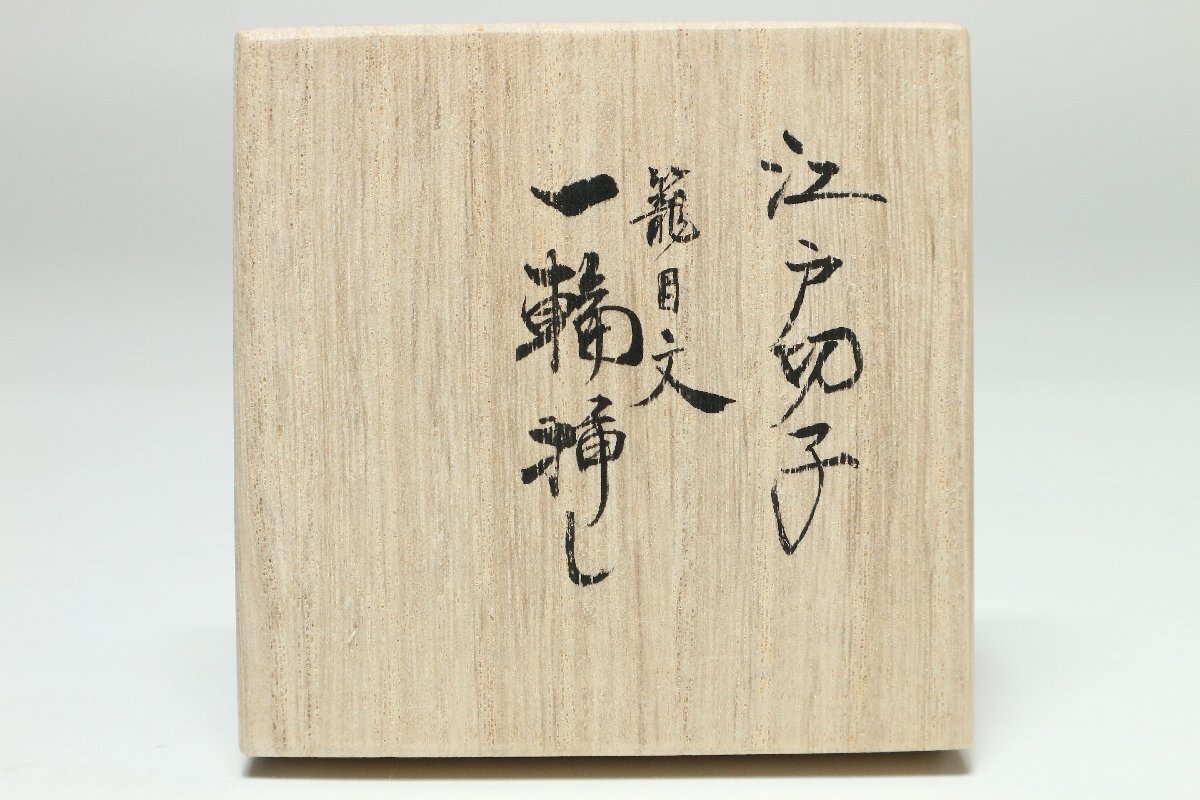 江戸切子
籠目文
一輪挿し